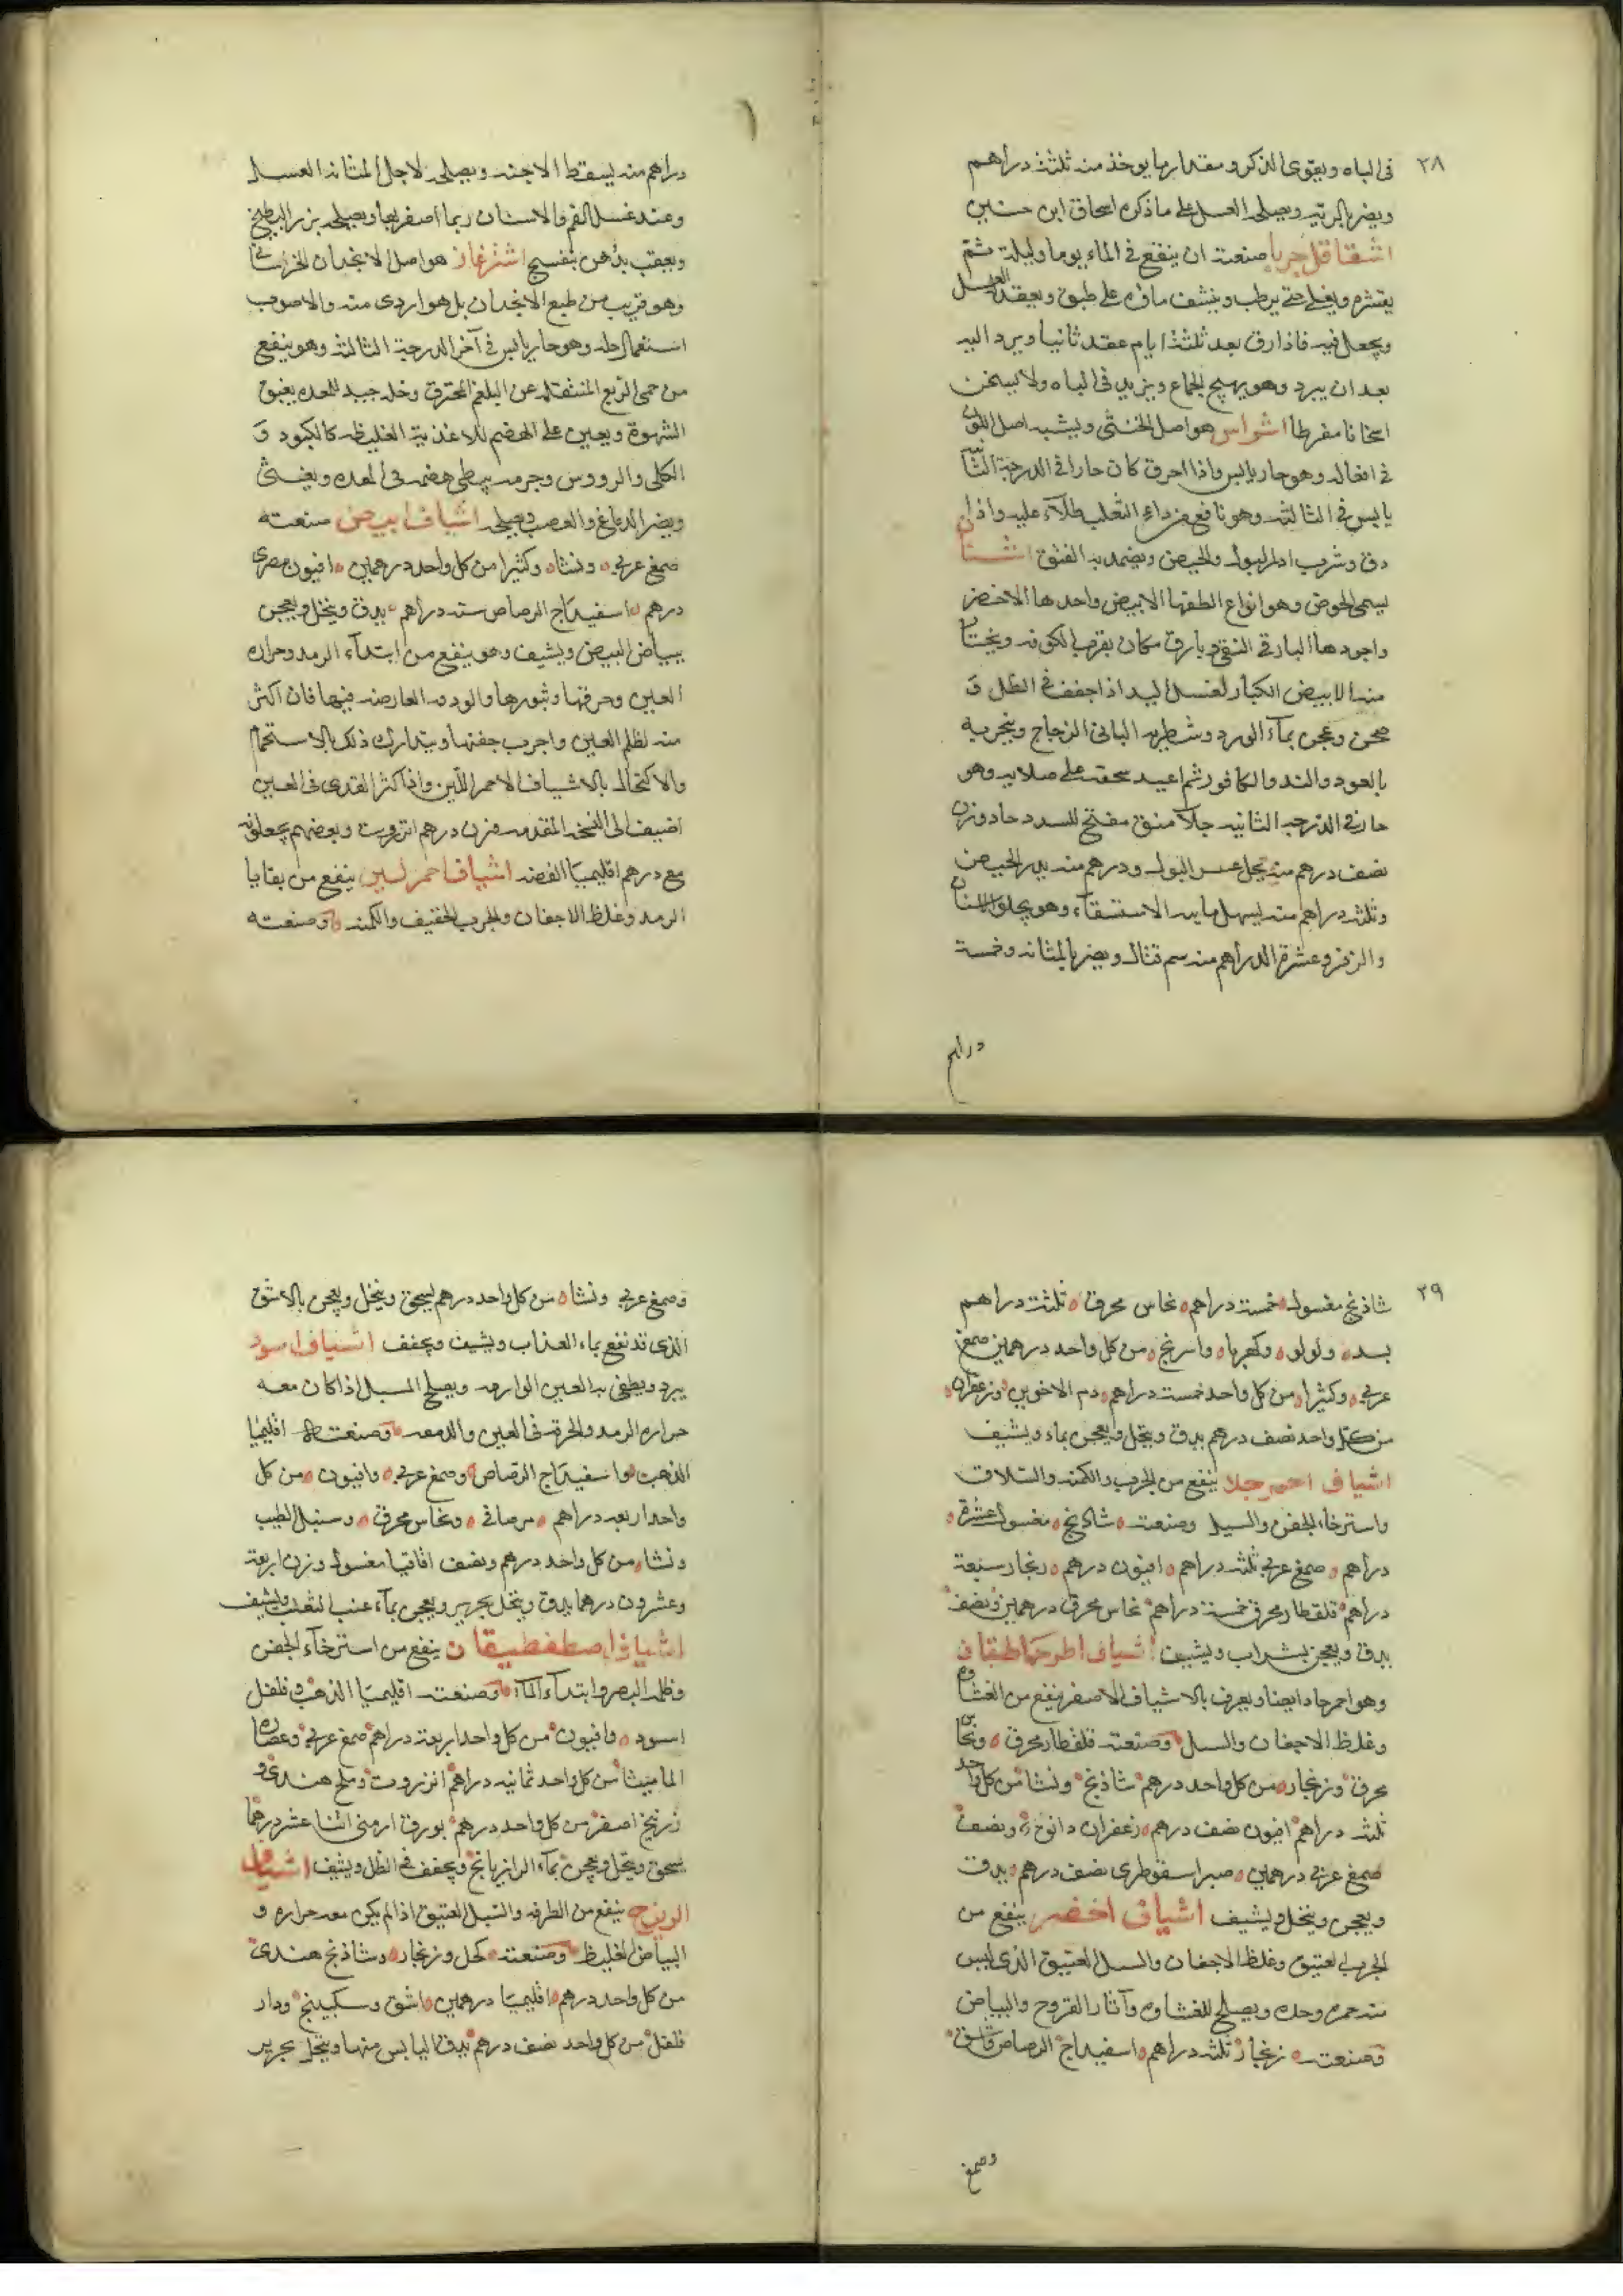 ٢٨
فى الباه ويقوى الذكر ومقدار ما يوخذ منه ثلثة دراهم
ويضر بالرئيه ويصلحه العسل على ما ذكره اسحاق ابن حنين
اشقاقل جربا صنعته ان ينقع فى الماء يوما وليلة ثم
يقشره ويغلى حتى يرطب وينشف ماؤه على طبق ويعقد العسل
ويجعل فيه فاذا رق بعد ثلثة ايام عقد ثانيا ويرد اليه
بعد ان يبرد وهو يهيج الجماع ويزيد فى الباه ولا يسخن
اسخانا مفرطا اشراس هو اصل الخنثى ويشبه اصل اللوف
فى افعاله وهو حار يابس واذا احرق كان حارا فى الدرجة الثانيه
يابس فى الثالثه وهو نافع من داء الثعلب طلاء عليه واذا
دق وشرب ادر البول والحيض ويضمد به الفتق اشنان
يسمى الحرض وهو انواع الطفها الابيض واحدها الاخضر
واجودها البارقى النقى وبارق مكان بقرب الكوفه ويختار
منه الابيض الكبار لغسل اليد اذا جفف فى الظل و
طحن وعجن بمآء الورد وشطر به البانى الزجاج وبخر به
بالعود والند والكافور ثم اعيد سحقه على صلايه وهو
حار فى الدرجه الثانيه جلآ منق مفتح للسدد حاد وزن
نصف درهم منه يحل عسر البول ودرهم منه يدر الحيض
وثلثه دراهم منه يسهل مايه الاستسقآء وهو يجلو الاسنان
والزفر وعشرة الدراهم منه سم قتال ويضر بالمثانه وخمسة
دراهم
دراهم منه يسقط الاجنه ويصلحه لاجل المثانه العسل
وعند غسل الفم والاسنان ربما اصفر بها ويصلحه بزر البطيخ
ويعقب بدهن بنفسج اشترغاز هو اصل الانجدان الخراسانى
وهو قريب من طبع الانجدان بل هو اردى منه والاصوب
استعمال خله وهو حار يابس فى آخر الدرجة الثالثه وهو ينفع
من حمى الربع المنتقله عن البلغم المحترق وخله جيد للمعده يفتق
الشهوة ويعين على الهضم للاغذية الغليظه كالكبود و
الكلى والرووس وجرمه يبطى هضمه فى المعده ويغثى
ويضر الدماغ والعصب ويصلحه اشياف ابيض صنعته
صمغ عربى ونشاه وكثيرا من كل واحد درهمين افيون مصرى
درهم اسفيداج الرصاص سته دراهم يدق وينخل ويعجن
ببياض البيض ويشيف وهو ينفع من ابتدآء الرمد وحراره
العين وحرقتها وبثورها والودمه العارضه فيها فان اكثر
منه لظلم العين واجرب جفنها ويتدارك ذلك بالاستحمام
والاكتحال بالاشياف الاحمر اللّين واذا كثر القذى فى العين
اضيف الى النسخه المقدمه وزن درهم انزروت وبعضهم يجعلونه
مع درهم اقليميا الفضه اشياف احمر لين ينفع من بقايا
الرمد وغلظ الاجفان والجرب الخفيف والكمنه وصنعته
٢٩
شاذنج مغسول خمسة دراهم نحاس محرق ثلثة دراهم
بسد ولولو وكهربا واسرنج من كل واحد درهمين صمغ
عربى وكثيرا من كل واحد خمسة دراهم دم الاخوين وزعفران
من كل واحد نصف درهم يدق وينخل ويعجن بماء ويشيف
اشياف احمر جلا ينفع من الجرب والكمنه والسلاق
واسترخاء الجفن والسبل وصنعته شاذنج مغسول عشرة
دراهم صمغ عربى ثلثه دراهم افيون درهم زنجار سبعة
دراهم قلقطار محرق خمسة دراهم نحاس محرق درهمين ونصف
يدق ويعجن بشراب ويشيف اشياف اطرخماطيقان
وهو احمر حاد ايضا ويعرف بالاشياف الاصفر ينفع من الغشاوه
وغلظ الاجفان والسبل وصنعته قلقطار محرق ونحاس
محرق وزنجار من كل واحد درهم شاذنج ونشا من كل واحد
ثلثه دراهم افيون نصف درهم زعفران دانق ونصف
صمغ عربى درهمين صبر اسقوطرى نصف درهم يدق
ويعجن وينخل ويشيف اشياف اخضر ينفع من
الجرب العتيق وغلظ الاجفان والسبل العتيق الذى ليس
منه حمره وحده ويصلح للغشاوه وآثار القروح والبياض
وصنعته زنجار ثلثه دراهم اسفيداج الرصاص واشق
وصمغ
وصمغ عربى ونشاه من كل واحد درهم يسحق وينخل ويعجن بالاشق
الذى قد نقع بماء السذاب ويشيف ويجفف اشياف اسود
يبرد ويطفى به العين الوارمه ويصلح السبل اذا كان معه
حراره الرمد والحرة فى العين والدمعه وصنعته اقليميا
الذهب واسفيداج الرصاص وصمغ عربى وافيون من كل
واحد اربعه دراهم مر صافى ونحاس محرق وسنبل الطيب
ونشا من كل واحد درهم ونصف اقاقيا مغسول وزن اربعة
وعشرون درهما يدق وينخل بحرير ويعجن بمآء عنب الثعلب ويشيف
اشياف اصطفطيقان ينفع من استرخآء الجفن
وظلمه البصر وابتدآء المآء وصنعته اقليميا الذهب وفلفل
اسود وافيون من كل واحد اربعة دراهم صمغ عربى وعصاره
الماميثا من كل واحد ثمانيه دراهم انزروت وملح هندى و
زرنيخ اصفر من كل واحد درهم بورق ارمنى اثنا عشر درهما
يسحق وينخل ويعجن بمآء الرازيانج ويجفف فى الظل ويشيف اشياف
الرينج ينفع من الطرفه والسبل العتيق اذا لم يكن معه حراره و
البياض الغليظ وصنعته كحل وزنجار وشاذنج هندى
من كل واحد درهم اقليميا درهمين اشق وسكبينج ودار
فلفل من كل واحد نصف درهم يدق اليابس منها وينخل بحرير